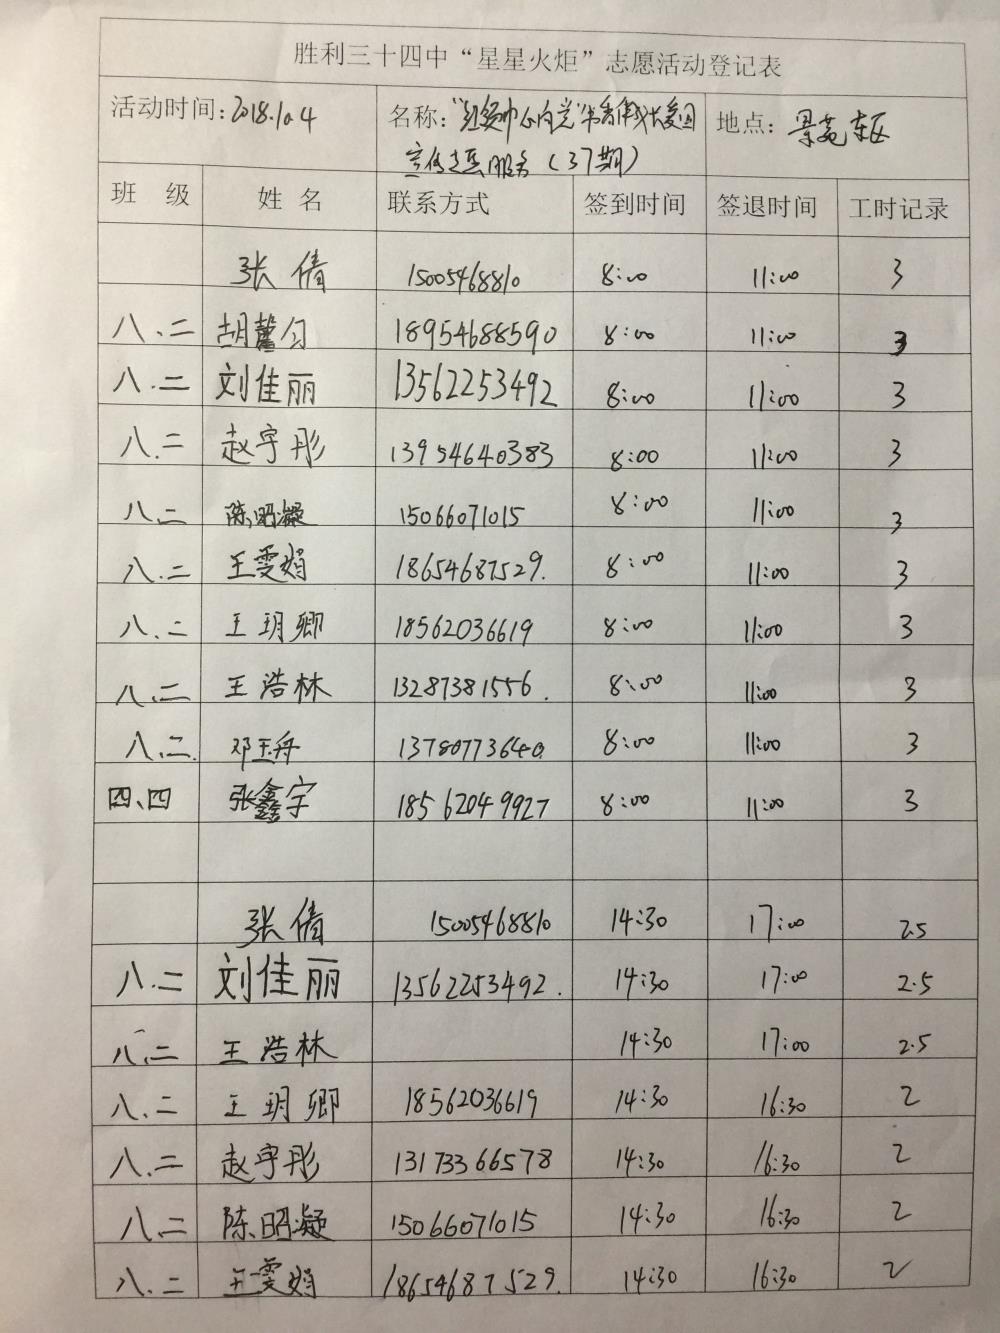 胜利三十四中“星星火炬”志愿活动登记表
活动时间：2018.10.4 名称：“红领巾心向党” 地点：景苑东区
宣传志愿服务（37期）
班 级 姓 名 联系方式 签到时间 签退时间 工时记录
张倩 15005468810 8:00 11:00 3
八.二 胡馨匀 18954688590 8:00 11:00 3
八.二 刘佳丽 13562253492 8:00 11:00 3
八.二 赵宇彤 13954640383 8:00 11:00 3
八.二 陈昭凝 15066071015 8:00 11:00 3
八.二 王雯娟 18654687529. 8:00 11:00 3
八.二 王玥卿 18562036619 8:00 11:00 3
八.二 王浩林 13287381556. 8:00 11:00 3
八.二. 邓玉舟 13780773640. 8:00 11:00 3
四、四 张鑫宇 18562049927 8:00 11:00 3
张倩 15005468810 14:30 17:00 2.5
八.二 刘佳丽 13562253492. 14:30 17:00 2.5
八.二 王浩林 14:30 17:00 2.5
八.二 王玥卿 18562036619 14:30 16:30 2
八.二 赵宇彤 13173366578 14:30 16:30 2
八.二 陈昭凝 15066071015 14:30 16:30 2
八.二 王雯娟 18654687529. 14:30 16:30 2